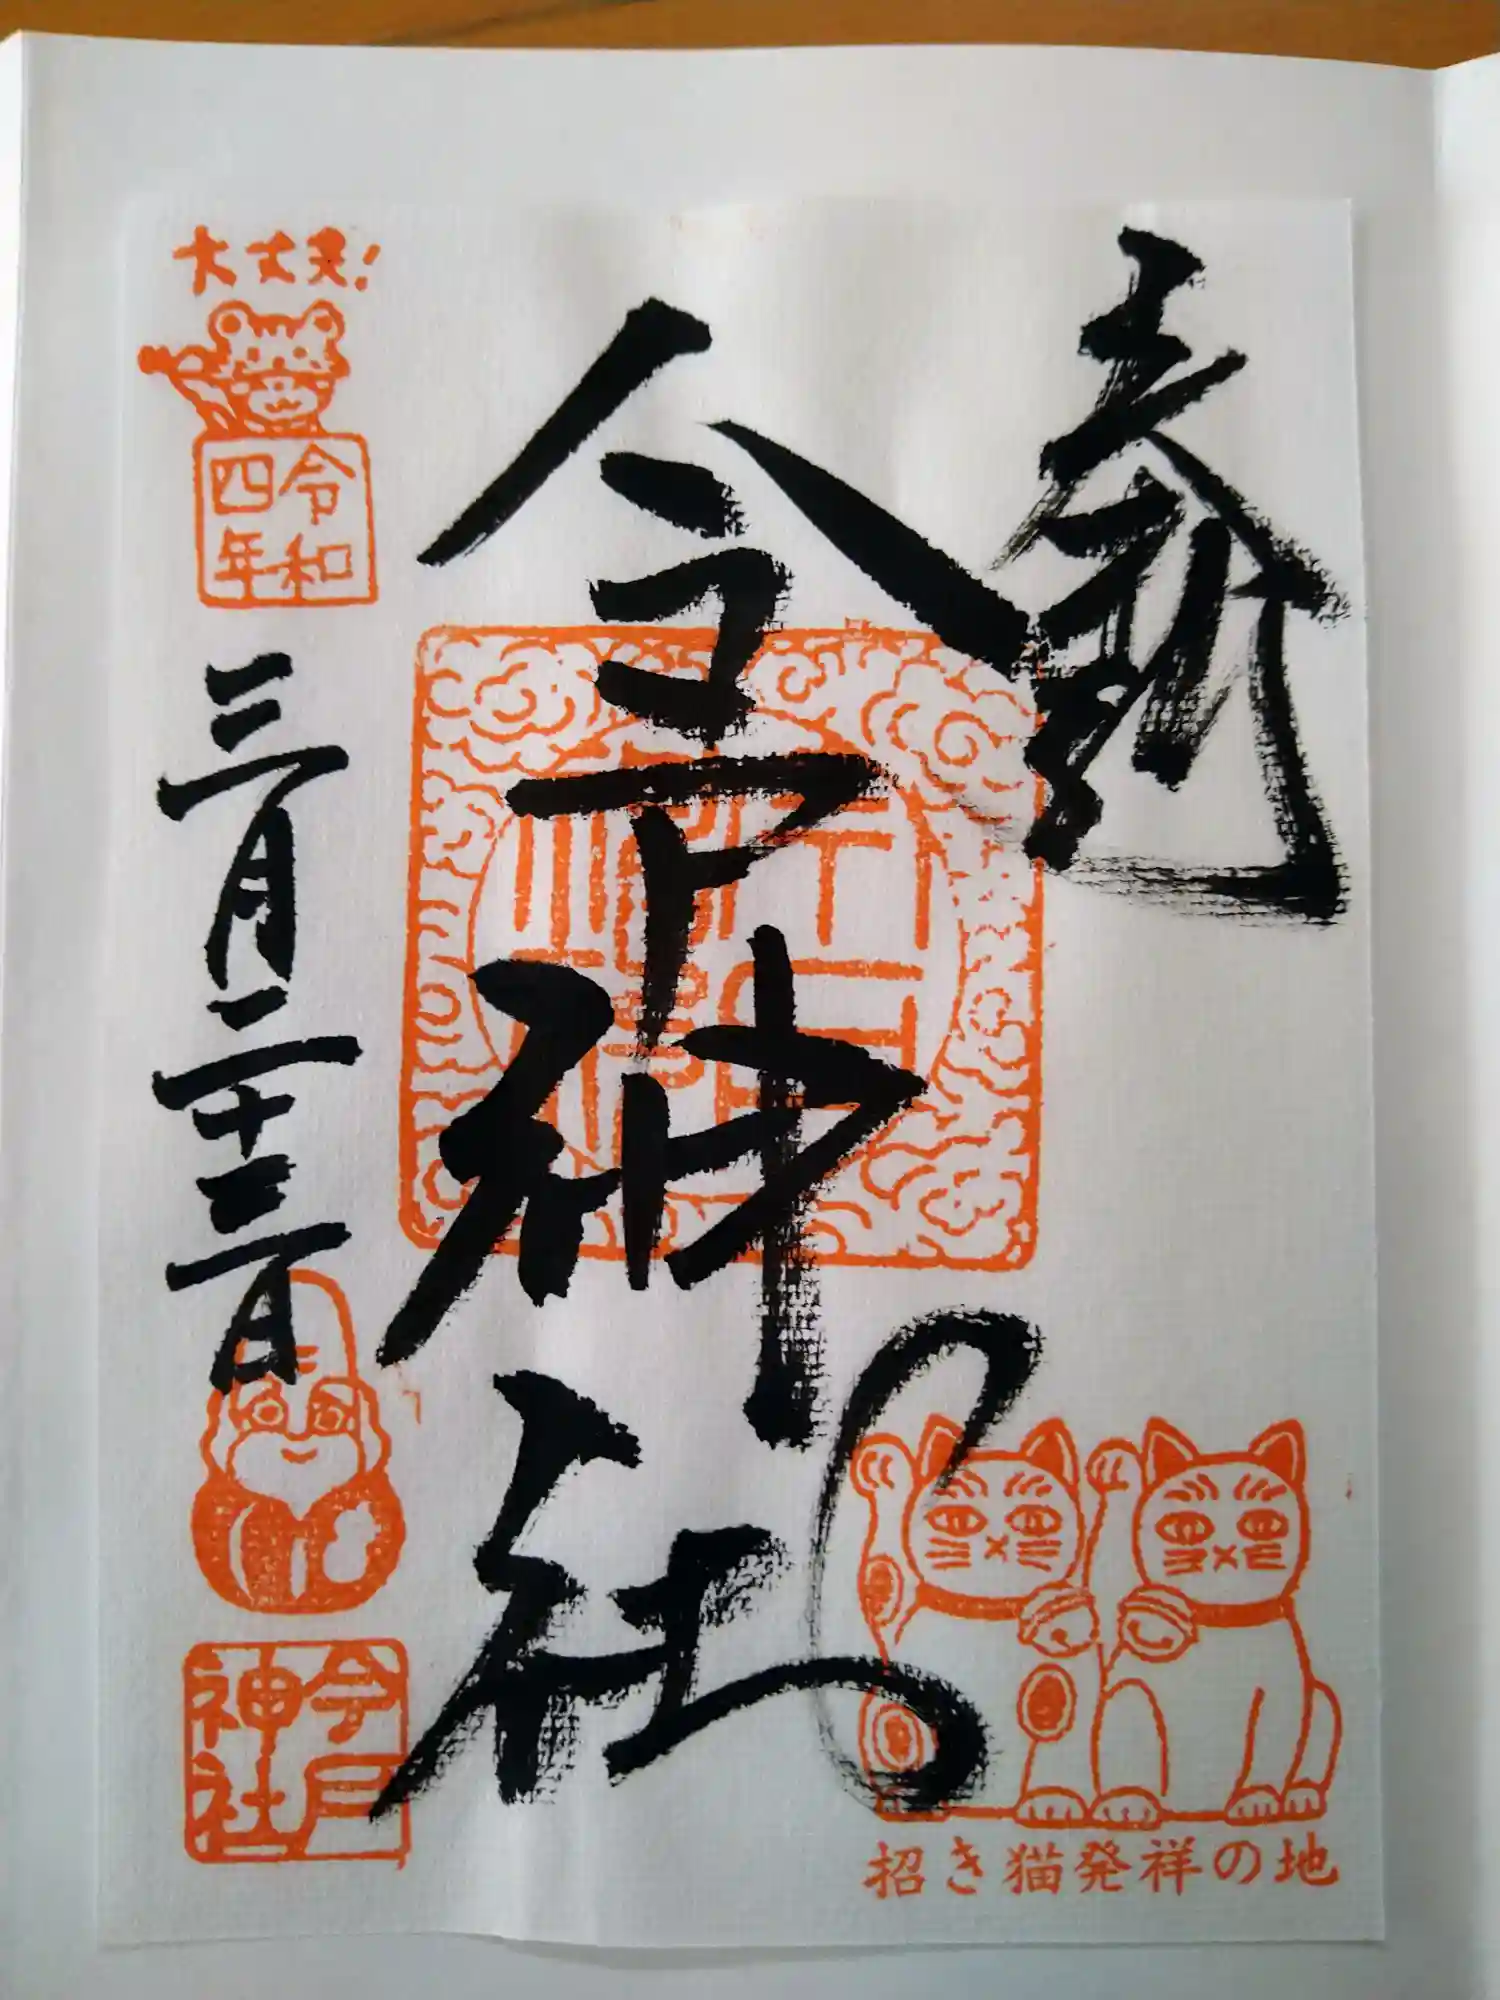 奉拝
招き猫発祥の地
今戸神社
大丈夫!
令和
四年
三月二十三日
今戸
神社